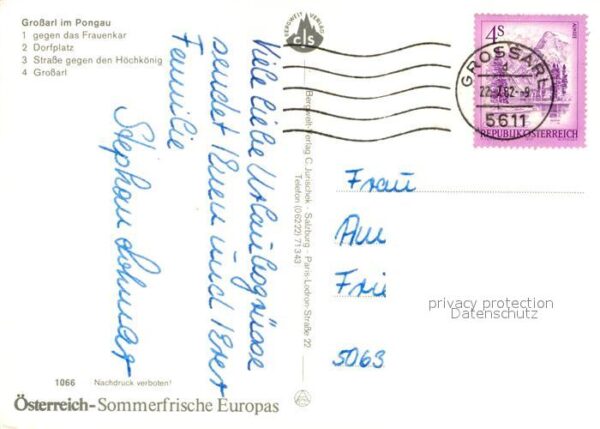 Großarl im Pongau
1 gegen das Frauenkar
2 Dorfplatz
3 Straße gegen den Höchkönig
4 Großarl
BERGWELT VERLAG
cls
4S
ALMSEE
REPUBLIK ÖSTERREICH
GROSSARL
5611
Viele liebe Urlaubsgrüsse
sendet Ihnen und Ihrer
Familie
Stephan Lohmar
Bergwelt-Verlag C. Jurischek · Salzburg · Paris-Lodron-Straße 22
Telefon (06222) 71343
Frau
5063
privacy protection
Datenschutz
1066 Nachdruck verboten!
Österreich-Sommerfrische Europas